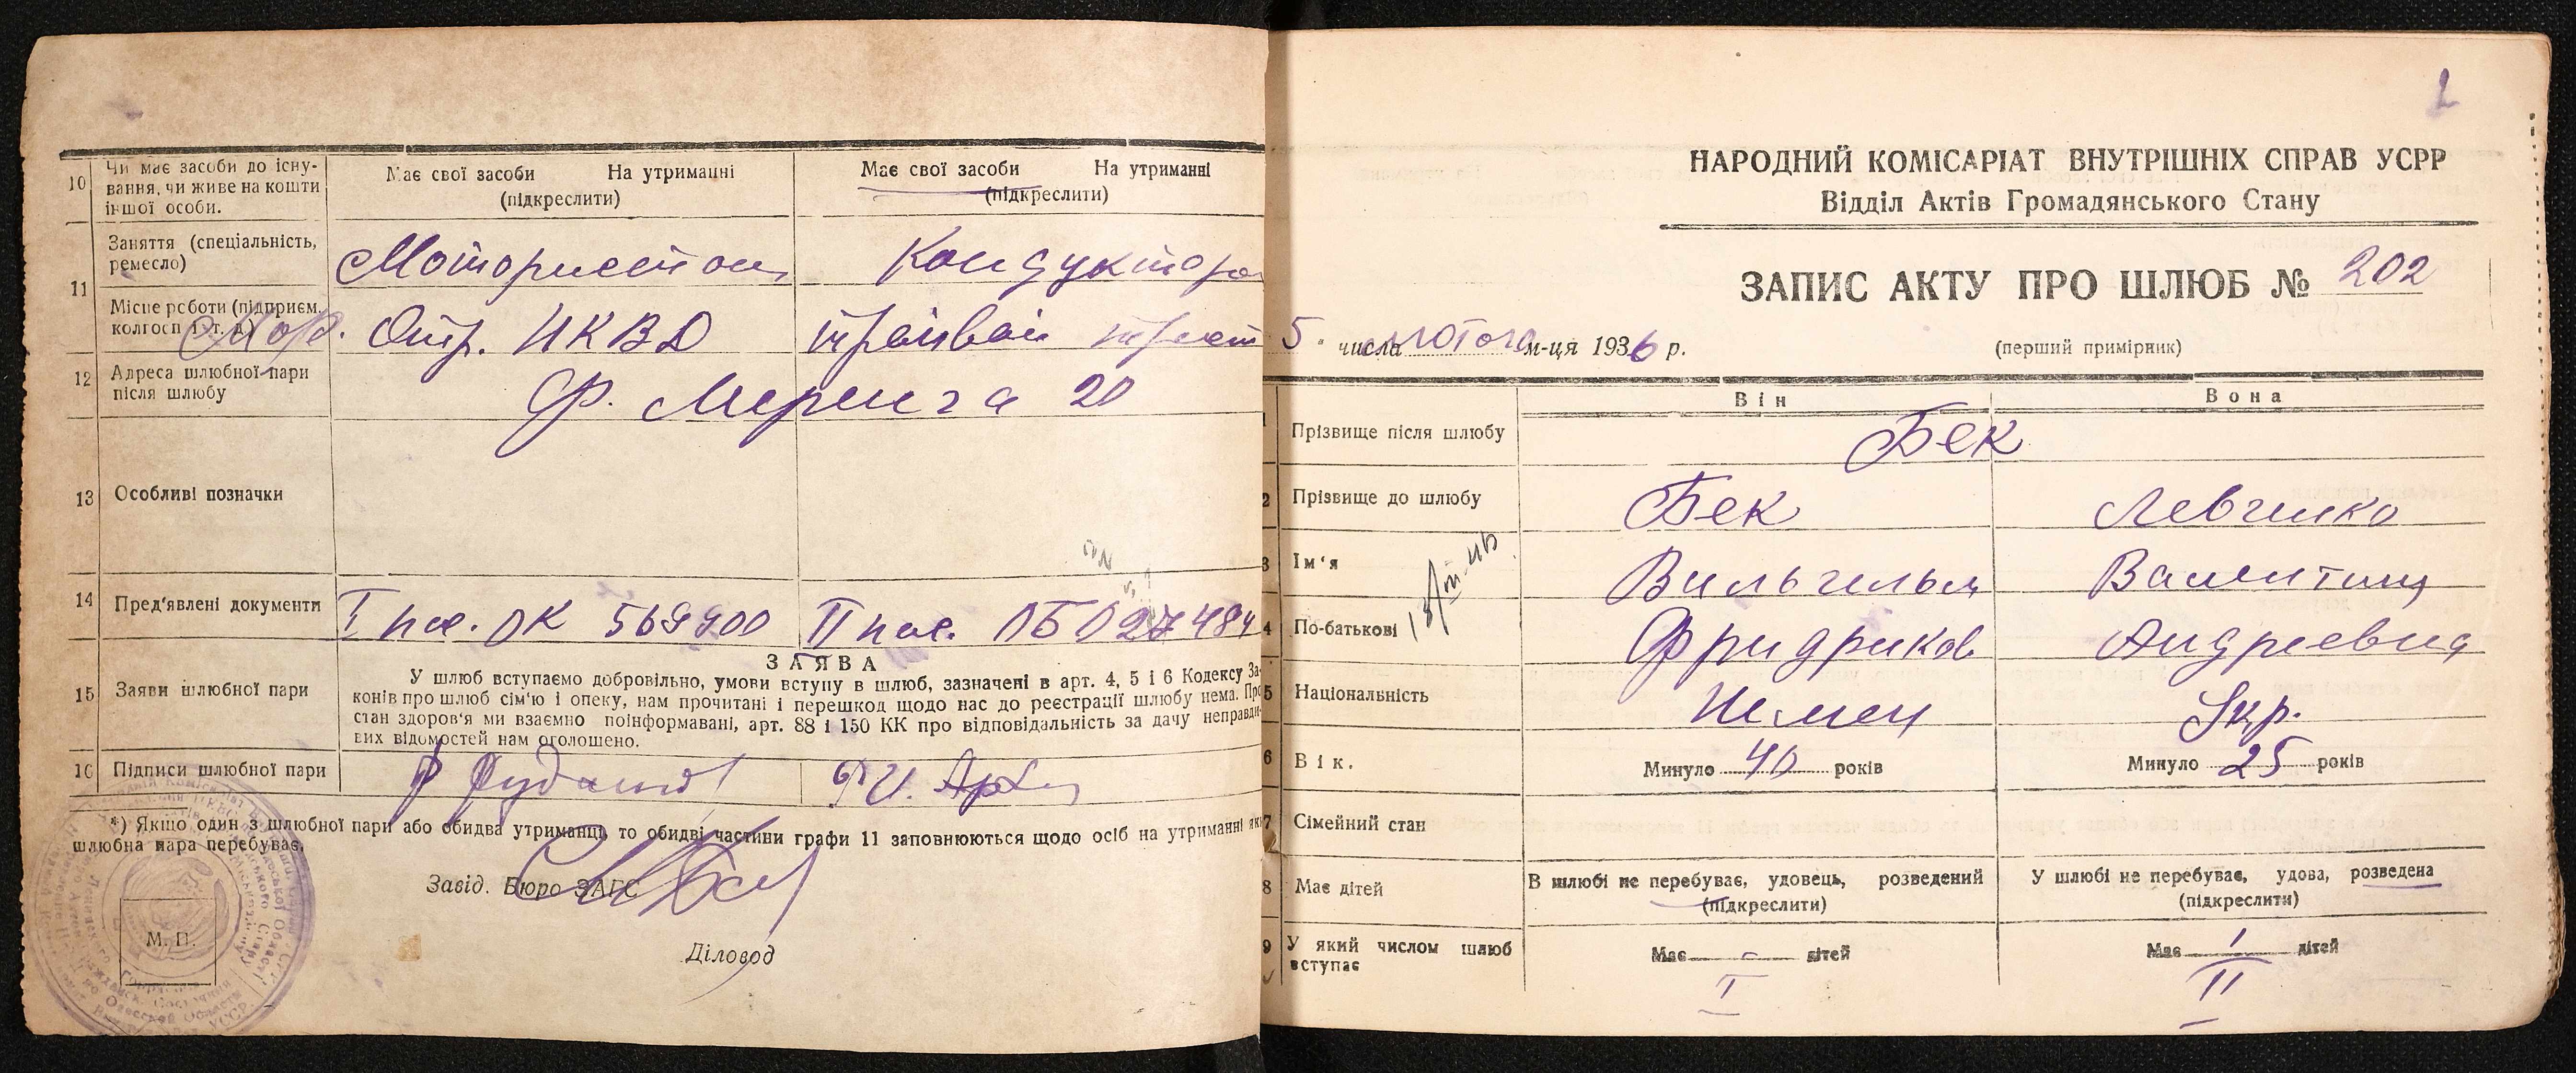 10 Чи має засоби до існу-
вання, чи живе на кошти
іншої особи.
Має свої засоби На утриманні
(підкреслити)
Має свої засоби На утриманні
(підкреслити)
11 Заняття (спеціальність,
ремесло)
Мотористом
Кондуктором
Місце роботи (підприєм.
колгосп і т. д.)
Мор. Отр. НКВД
трамвай трест
12 Адреса шлюбної пари
після шлюбу
Ф. Меринга 20
13 Особливі позначки
14 Пред'явлені документи
I пас. ОК 569900
II пас. ОБ 027484
15 Заяви шлюбної пари
ЗАЯВА
У шлюб вступаємо добровільно, умови вступу в шлюб, зазначені в арт. 4, 5 і 6 Кодексу За-
конів про шлюб сім'ю і опеку, нам прочитані і перешкод щодо нас до реєстрації шлюбу нема. Про
стан здоров'я ми взаємно поінформавані, арт. 88 і 150 КК про відповідальність за дачу неправди-
вих відомостей нам оголошено.
16 Підписи шлюбної пари
*) Якщо один з шлюбної пари або обидва утриманці, то обидві частини графи 11 заповнюються щодо осіб на утриманні яких
шлюбна пара перебуває.
Завід. Бюро ЗАГС
М. П.
Діловод
НАРОДНИЙ КОМІСАРІАТ ВНУТРІШНІХ СПРАВ УСРР
Відділ Актів Громадянського Стану
ЗАПИС АКТУ ПРО ШЛЮБ № 202
5 числа лютого м-ця 1936 р.
(перший примірник)
Він Вона
1 Прізвище після шлюбу
Бек
2 Прізвище до шлюбу
Бек Левченко
3 Ім'я
Вильгельм Валентина
4 По-батькові
Фридриков Андреевна
5 Національність
Немец Укр.
6 Вік.
Минуло 40 років
Минуло 25 років
7 Сімейний стан
8 Має дітей
В шлюбі не перебуває, удовець, розведений
(підкреслити)
У шлюбі не перебуває, удова, розведена
(підкреслити)
9 У який числом шлюб
вступає
Має - дітей
Має 1 дітей
I II